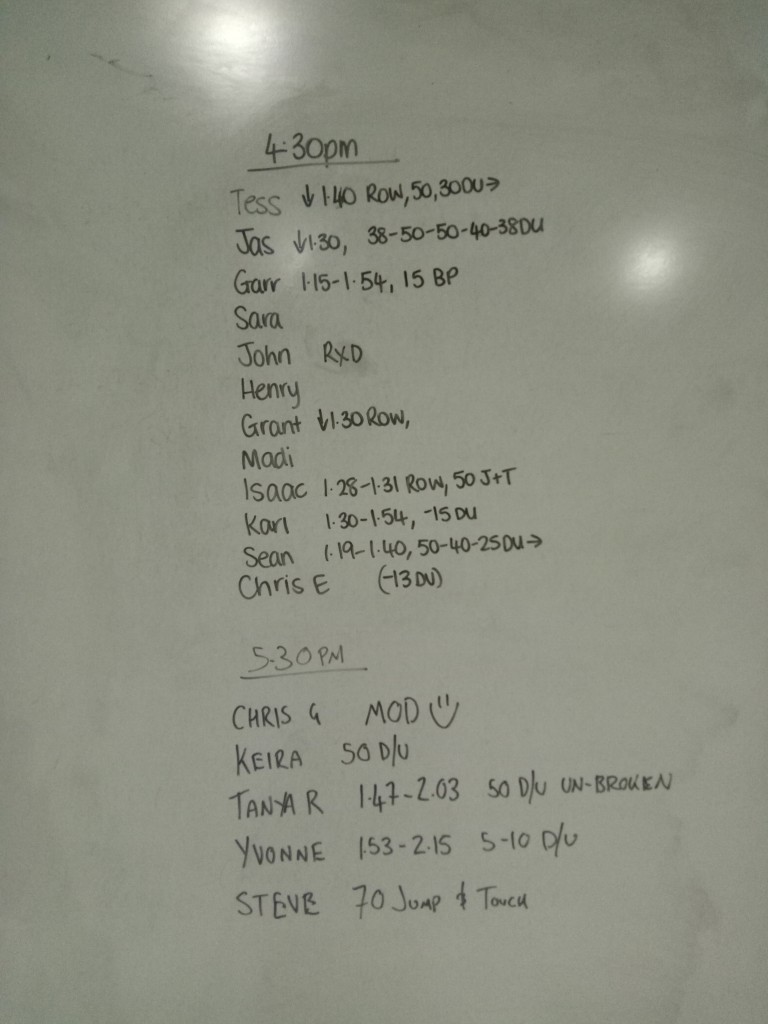 4:30pm
Tess ↓ 1.40 ROW, 50, 30DU→
Jas ↓1.30, 38-50-50-40-38DU
Garr 1.15-1.54, 15 BP
Sara
John RXD
Henry
Grant ↓1.30 ROW,
Madi
Isaac 1.28-1.31 ROW, 50 J+T
Karl 1.30-1.54, -15 DU
Sean 1.19-1.40, 50-40-25DU→
Chris E (-13 DU)
5.30 PM
CHRIS G MOD
KEIRA 50 D/U
TANYA R 1.47-2.03 50 D/U UN-BROKEN
YVONNE 1.53-2.15 5-10 D/U
STEVE 70 JUMP & TOUCH